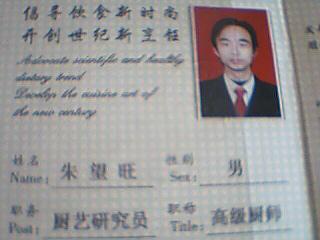 倡导饮食新时尚
开创世纪新烹饪
Advocate scientific and healthy
dietary trend
Develop the cuisine art of
the new century
姓名 朱望旺 性别 男
Name: Sex:
职务 厨艺研究员 职称 高级厨师
Post: Title: